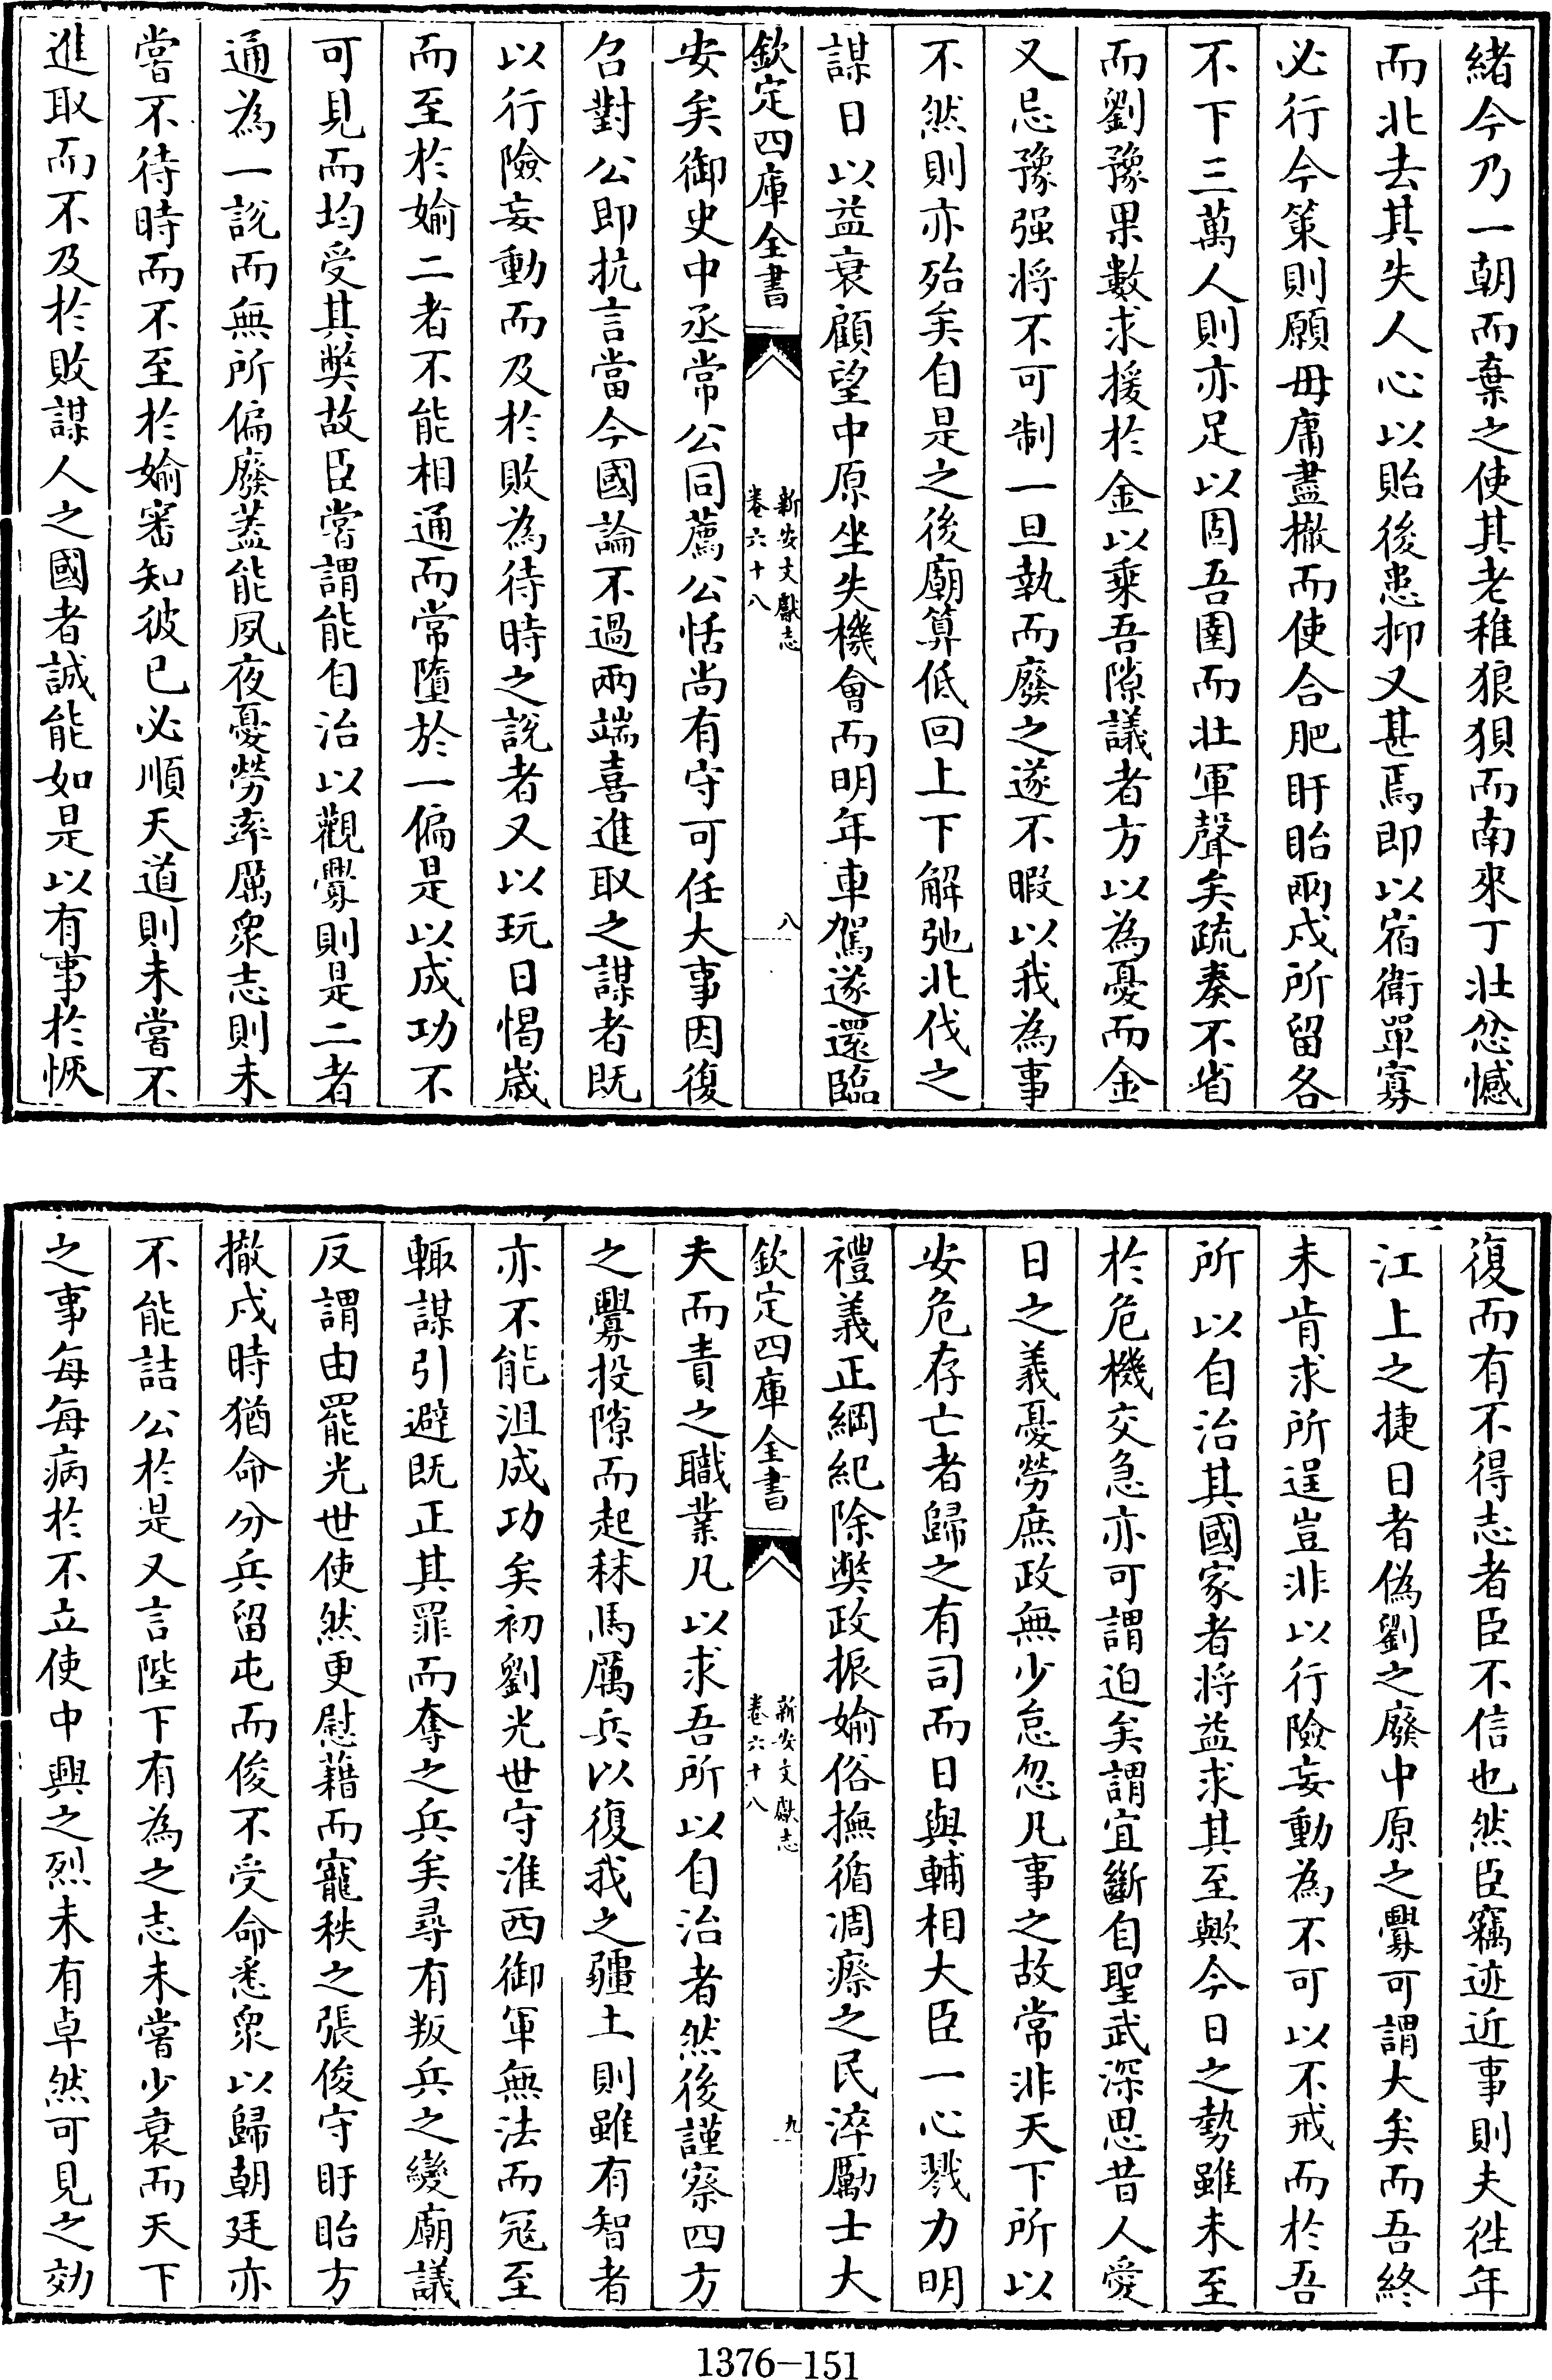 緒今乃一朝而棄之使其老稚狼狽而南來丁壯忿憾
而北去其失人心以貽後患抑又甚焉即以宿衛單寡
必行今策則願毋庸盡撤而使合肥盱眙兩戍所留各
不下三萬人則亦足以固吾圉而壯軍聲矣疏奏不省
而劉豫果數求援於金以乘吾隙議者方以為憂而金
又忌豫强将不可制一旦執而廢之遂不暇以我為事
不然則亦殆矣自是之後廟算低回上下解弛北伐之
謀日以益衰顧望中原坐失機會而明年車駕遂還臨
欽定四庫全書
新安文獻志
卷六十八
八
安矣御史中丞常公同薦公恬尚有守可任大事因復
召對公即抗言當今國論不過兩端喜進取之謀者既
以行險妄動而及於敗為待時之說者又以玩日愒歲
而至於婾二者不能相通而常墮於一偏是以成功不
可見而均受其獘故臣嘗謂能自治以觀釁則是二者
通為一說而無所偏廢蓋能夙夜憂勞率厲衆志則未
嘗不待時而不至於婾審知彼已必順天道則未嘗不
進取而不及於敗謀人之國者誠能如是以有事於恢
復而有不得志者臣不信也然臣竊迹近事則夫徃年
江上之捷日者偽劉之廢中原之釁可謂大矣而吾終
未肯求所逞豈非以行險妄動為不可以不戒而於吾
所以自治其國家者将益求其至歟今日之勢雖未至
於危機交急亦可謂迫矣謂宜斷自聖武深思昔人愛
日之義憂勞庶政無少怠忽凡事之故常非天下所以
安危存亡者歸之有司而日與輔相大臣一心戮力明
禮義正綱紀除獘政振婾俗撫循凋瘵之民淬勵士大
欽定四庫全書
新安文獻志
卷六十八
九
夫而責之職業凡以求吾所以自治者然後謹察四方
之釁投隙而起秣馬厲兵以復我之疆土則雖有智者
亦不能沮成功矣初劉光世守淮西御軍無法而冦至
輙謀引避既正其罪而奪之兵矣尋有叛兵之變廟議
反謂由罷光世使然更慰藉而寵秩之張俊守盱眙方
撤戍時猶命分兵留屯而俊不受命悉衆以歸朝廷亦
不能詰公於是又言陛下有為之志未嘗少衰而天下
之事每每病於不立使中興之烈未有卓然可見之効
1376—151